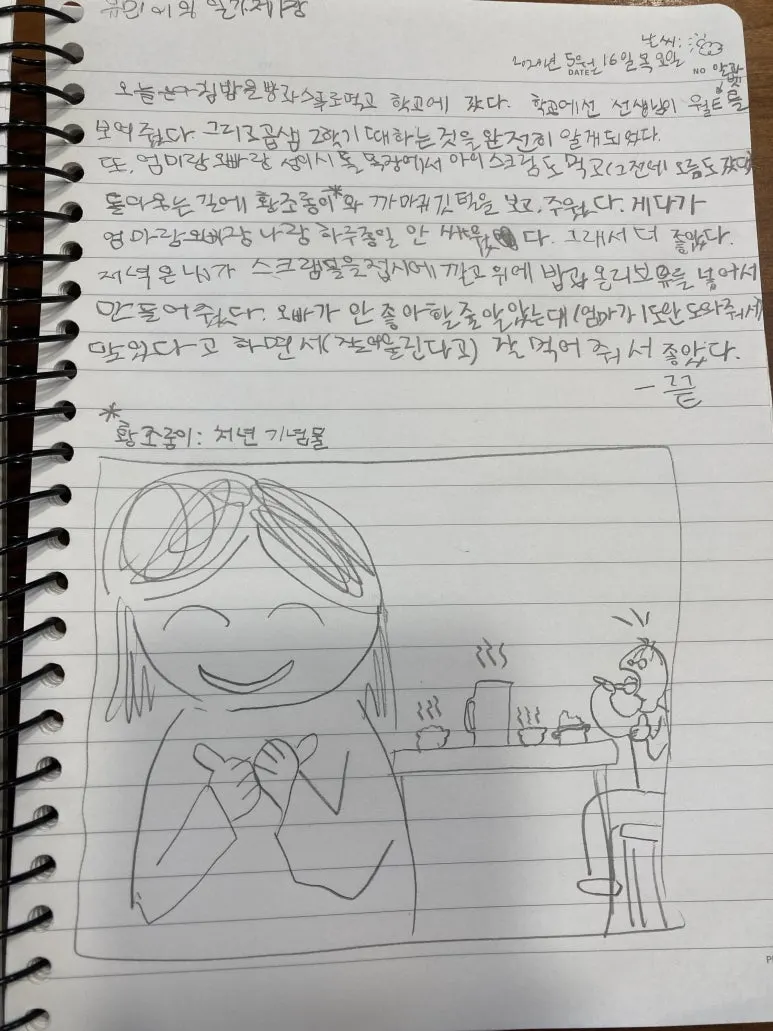 유민이의 일기제1장
날씨:
2024년 5월 16일 목요일
DATE
NO
알과
오늘은 아침밥을 빵과 스프로 먹고 학교에 갔다. 학교에선 선생님이 를
보여줬다. 그리고 곱셈 2학기 때 하는 것을 완전히 알게되었다.
또, 엄마랑 오빠랑 성이시돌 목장에서 아이스크림도 먹고(그전에 오름도 갔다
돌아오는 길에 황조롱이*와 까마귀 깃털을 보고, 주웠다. 게다가
엄마랑 오빠랑 나랑 하루종일 안 싸웠다. 그래서 더 좋았다.
저녁은 내가 스크램블을 접시에 깔고 위에 밥과 올리브유를 넣어서
만들어줬다. 오빠가 안 좋아할 줄 알았는대(엄마가 1도 안 도와줘서)
맛있다고 하면서(잘어울린다고) 잘 먹어 줘서 좋았다.
- 끝
*
황조롱이: 처년 기념물